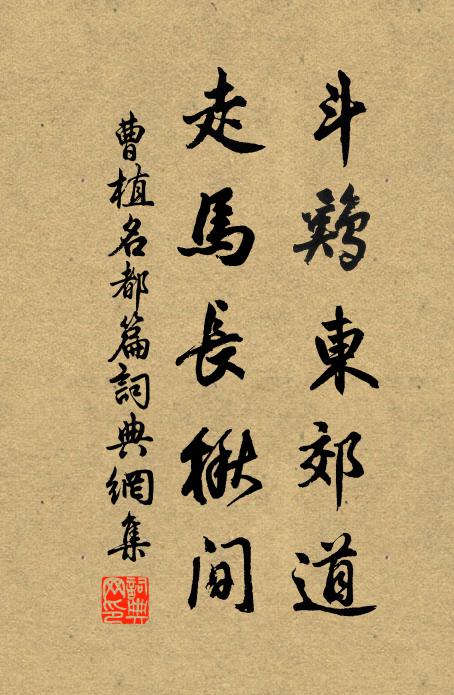 斗鷄東郊道
走馬長楸間
曹植名都篇詞典網集
詞典网印